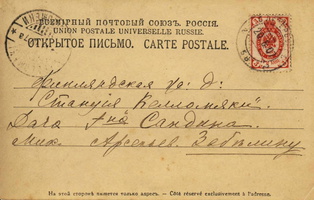 ВСЕМІРНЫЙ ПОЧТОВЫЙ СОЮЗЪ. РОССІЯ.
UNION POSTALE UNIVERSELLE RUSSIE.
ОТКРЫТОЕ ПИСЬМО. CARTE POSTALE.
Финляндская
Станція Келломяки".
Дача Г-на Сандина.
Арсеньев. Забѣлину
На этой сторонѣ пишется только адресъ. - Côté réservé exclusivement à l'adresse.